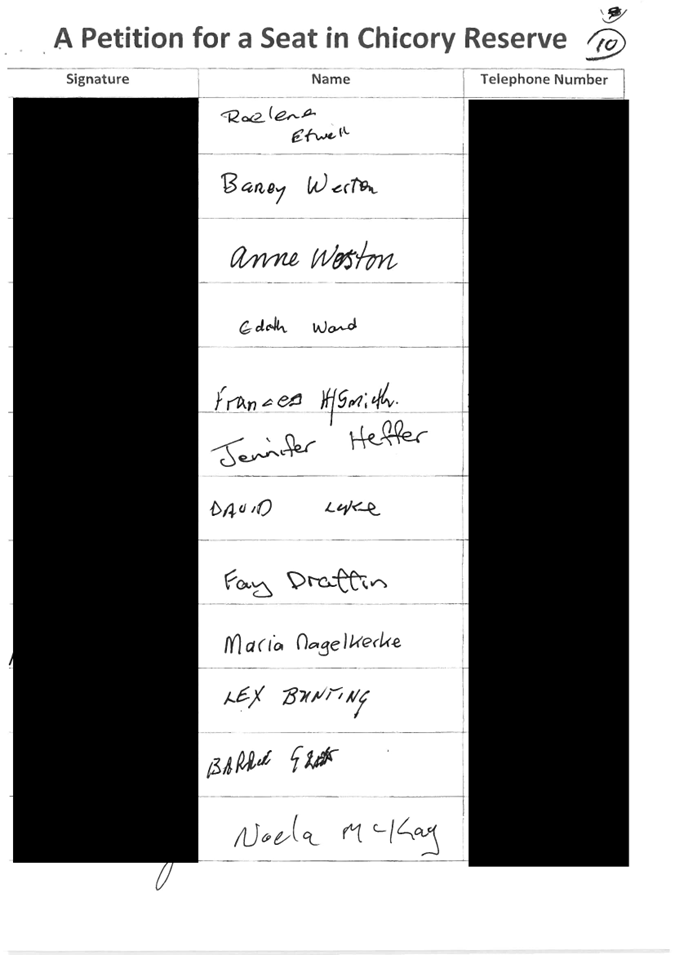 A Petition for a Seat in Chicory Reserve 10
Signature Name Telephone Number
Raelene
Etwell
Barry Weston
Anne Weston
Edith Ward
Frances H/Smith.
Jennifer Heffer
DAVID LUKE
Fay Draffin
Maria Nagelkerke
LEX BUNTING
BARRIE
Noela McKay